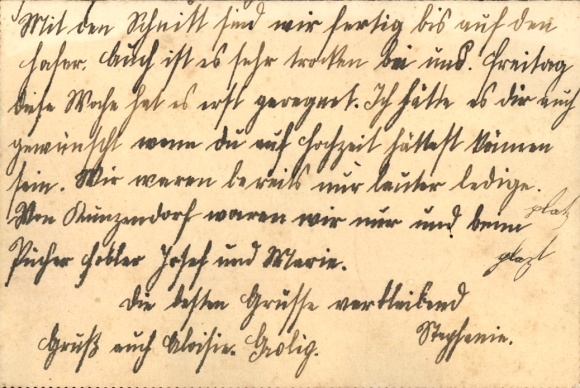 Mit den Schnitt sind wir fertig bis auf den
Hafer. Auch ist es sehr trocken bei uns. Freitag
diese Woche hat es erst geregnet. Ich hätte es dir auch
gewünscht wenn du auf Hochzeit hättest können
sein. Wir waren bereits nur lauter ledige.
Von Kunzendorf waren wir nur und beim
Josef und Marie.
Die besten Grüsse verbleibend
Gruß auch Aloisie.
Stephanie.